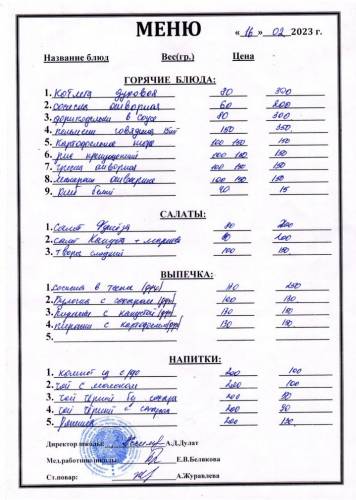 МЕНЮ « 16 » 02 2023 г.
Название блюд Вес(гр.) Цена
ГОРЯЧИЕ БЛЮДА:
1. котлета духовая 80 300
2. сосиска отварная 60 200
3. фрикадельки в соусе 80 300
4. пельмени говядина 150 350
5. Картофельное пюре 100 150 150
6. рис припущенный 100 150 150
7. гречка отварная 100 150 150
8. Макароны отварные 100 150 150
9. хлеб белый 15
САЛАТЫ:
1. салат 200
2. салат Капуста + морковь 200
3. Творог сладкий 100 150
ВЫПЕЧКА:
1. сосиска в тесте 110 250
2. Булочка с сахаром 100 130
3. Пирожки с капустой 130 150
4. Пирожки с картофелем 130 150
5.
НАПИТКИ:
1. компот из с/фр 200 100
2. чай с молоком 200 100
3. чай чёрный без сахара 200 80
4. чай чёрный с сахаром 200 90
5. 200 130
Директор школы: А.Д.Дулат
Мед.работник школы: Е.В.Белякова
Ст.повар: А.Журавлева